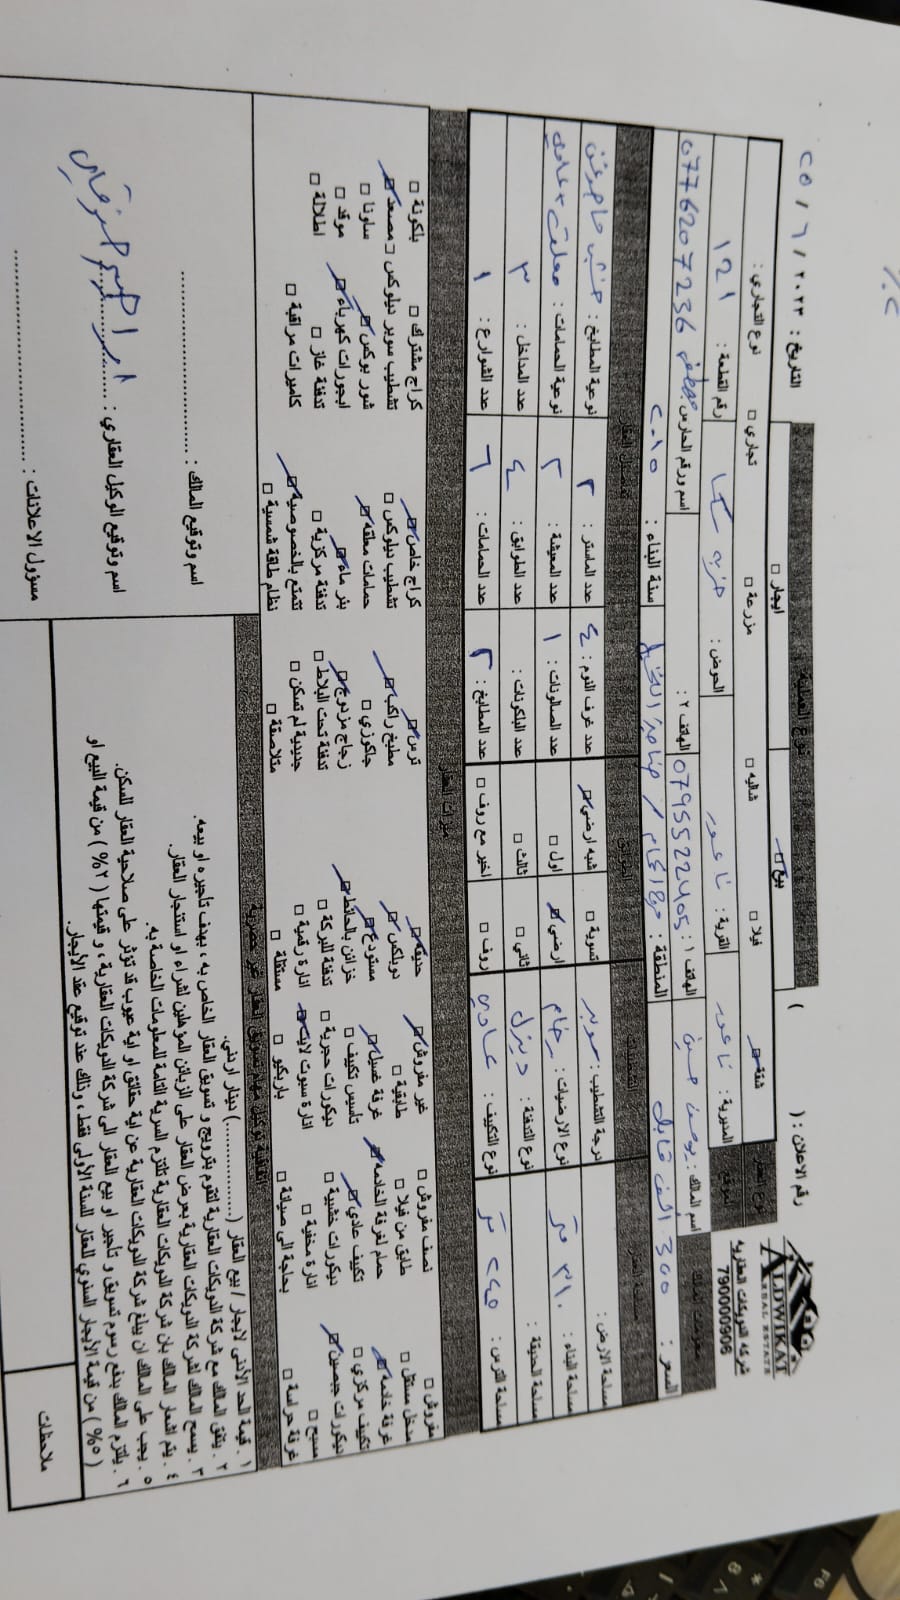 رقم الاعلان : ( )
التاريخ : ٢٠٢٣ / ٦ / ٢٥
ALDWIKAT
REAL ESTATE
شركة الدويكات العقارية
790000906
نوع العملية
بيع
ايجار
شقة فيلا شاليه مزرعة تجاري نوع التجاري :
الموقع المديرية : ناعور القرية : ناعور الحوض : رقم القطعة : ١٢١
اسم المالك : الهاتف ١ : 0795522405 الهاتف ٢ : اسم ورقم الحارس مصطفى 0776207236
السعر : 300 الف قابل المنطقة : سنة البناء : ٢٠١٥
مساحة العقار التشطيبات الطوابق تفاصيل العقار
مساحة الارض : درجة التشطيب : سوبر تسوية شبه ارضي عدد غرف النوم : ٤ عدد الماستر : ٢ نوعية المطابخ :
مساحة البناء : ٣١٠ متر نوع الارضيات : رخام ارضي اول عدد الصالونات : ١ عدد المعيشة : ٢ نوعية الحمامات :
مساحة الحديقة : نوع التدفئة : ديزل ثاني ثالث عدد البلكونات : عدد الطوابق : ٤ عدد المداخل : ٣
مساحة الترس : ٢٤٥ متر نوع التكييف : عادي روف اخير مع روف عدد المطابخ : ٢ عدد الحمامات : ٦ عدد الشوارع : ١
ميزات العقار
مفروش نصف مفروش غير مفروش حديقة ترس كراج خاص كراج مشترك بلكونة
مدخل مستقل طابق من فيلا طابقية دوبلكس مطبخ راكب تشطيب ديلوكس تشطيب سوبر ديلوكس مصعد
غرفة خادمة حمام لغرفة الخادمة غرفة غسيل مستودع جاكوزي حمامات معلقة شور بوكس ساونا
تكييف مركزي تكييف عادي تاسيس تكييف خزائن بالحائط زجاج مزدوج بئر ماء ابجورات كهرباء موقد
ديكورات جبصين ديكورات خشبية ديكورات حجرية تدفئة البركة تدفئة تحت البلاط تدفئة مركزية تدفئة غاز اطلالة
مسبح انارة مخفية انارة سبوت لايت انارة رقمية جديدية لم تسكن تتمتع بالخصوصية كاميرات مراقبة
غرفة حراسة بحاجة الى صيانة باربكيو مستقلة متلاصقة نظام طاقة شمسية
١ . قيمة الحد الأدنى لايجار / بيع العقار (..............) دينار اردني.
٢ . يتفق المالك مع شركة الدويكات العقارية لتقوم بترويج و تسويق العقار الخاص به ، بهدف تأجيره او بيعه.
٣ . يسمح المالك لشركة الدويكات العقارية بعرض العقار على الزبائن المؤهلين لشراء او استئجار العقار.
٤ . يتم اشعار المالك بان شركة الدويكات العقارية تلتزم السرية التامة للمعلومات الخاصة به.
٥ . يجب على المالك ان يبلغ شركة الدويكات العقارية عن اية حقائق او اية عيوب قد تؤثر على صلاحية العقار للسكن.
٦ . يلتزم المالك بدفع رسوم تسويق و تأجير او بيع العقار الى شركة الدويكات العقارية ، و قيمتها ( ٢% ) من قيمة البيع او
( ٥% ) من قيمة الايجار السنوي للعقار للسنة الأولى فقط، وذلك عند توقيع عقد الأيجار.
اسم وتوقيع المالك : ..............
اسم وتوقيع الوكيل العقاري : ..............
مسؤول الاعلانات : ..............
ملاحظات